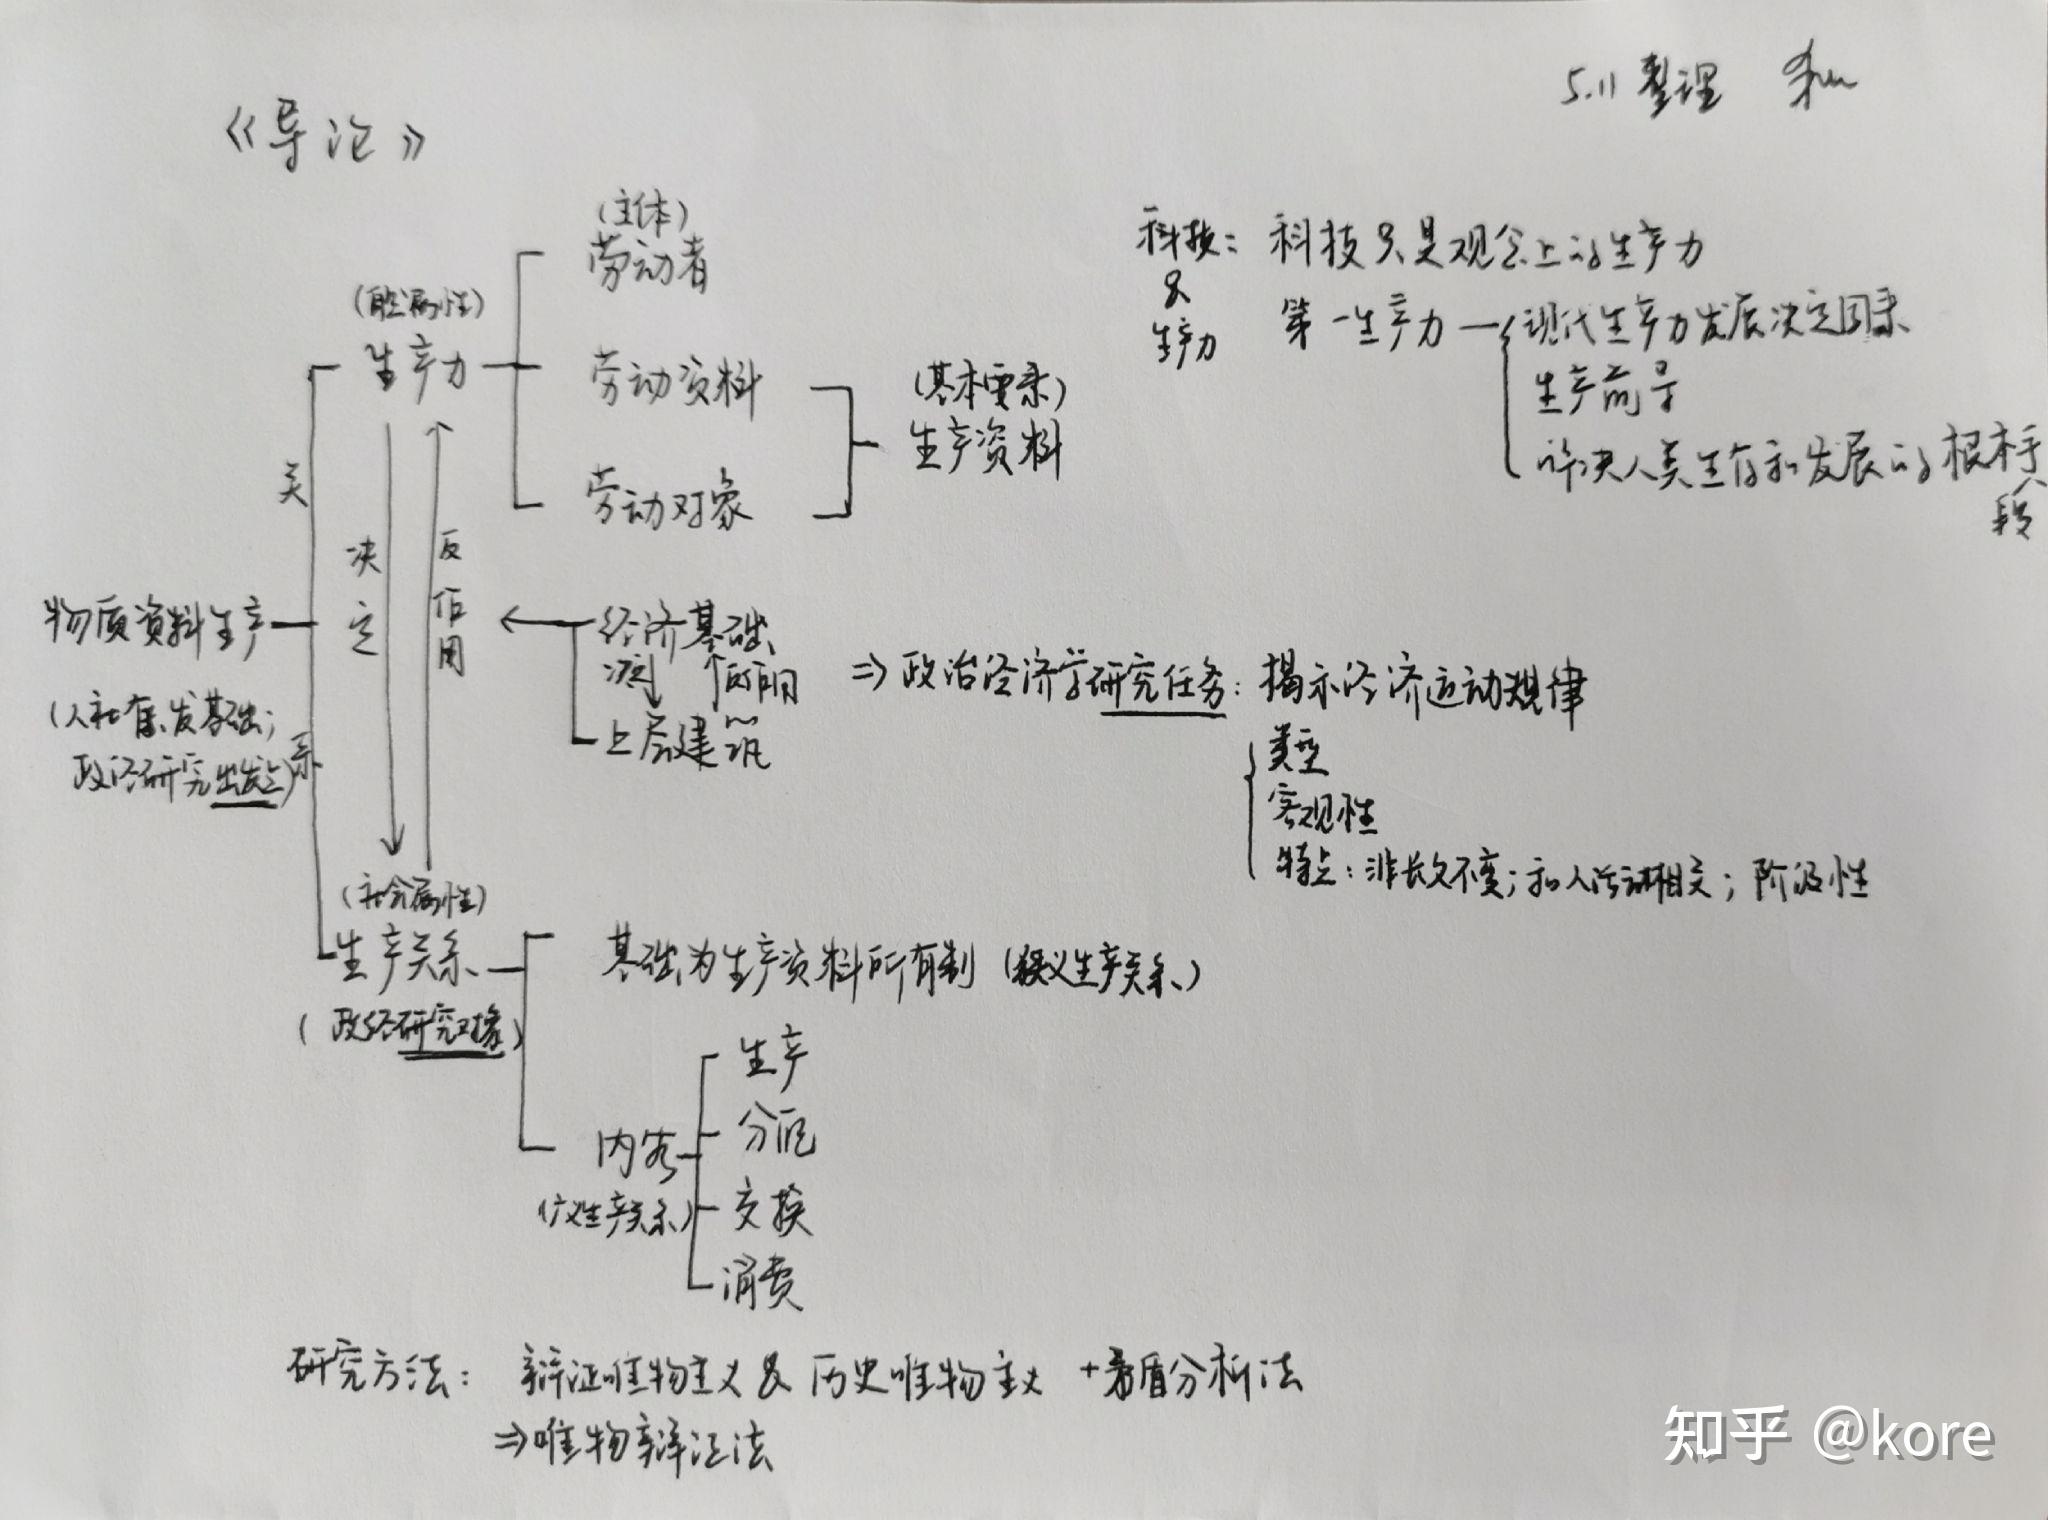 5.11 整理
《导论》
(主体)
劳动者
科技: 科技只是观念上的生产力
&
生产力
第一生产力
现代生产力发展决定因素
生产先导
解决人类生存和发展的根本手段
(自然属性)
生产力
劳动资料
(基本要素)
生产资料
劳动对象
关
系
决定
反作用
物质资料生产
(人社存、发基础;
政经研究出发点)
经济基础
决定 反作用
上层建筑
⇒政治经济学研究任务: 揭示经济运动规律
类型
客观性
特点: 非长久不变; 和人活动相关; 阶级性
(社会属性)
生产关系
(政经研究对象)
基础为生产资料所有制 (狭义生产关系)
内容
(广义生产关系)
生产
分配
交换
消费
研究方法: 辩证唯物主义 & 历史唯物主义 +矛盾分析法
⇒唯物辩证法
知乎 @kore